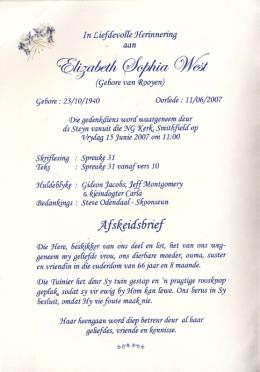 In Liefdevolle Herinnering
aan
Elizabeth Sophia West
(Gebore van Rooyen)
Gebore : 23/10/1940 Oorlede : 11/06/2007
Die gedenkdiens word waargeneem deur
ds Steyn vanuit die NG Kerk, Smithfield op
Vrydag 15 Junie 2007 om 11:00
Skriflesing : Spreuke 31
Teks : Spreuke 31 vanaf vers 10
Huldeblyke : Gideon Jacobs, Jeff Montgomery
& kleindogter Carla
Bedankings : Steve Odendaal - Skoonseun
Afskeidsbrief
Die Here, beskikker van ons deel en lot, het van ons weg-
geneem my geliefde vrou, ons dierbare moeder, ouma, suster
en vriendin in die ouderdom van 66 jaar en 8 maande.
Die Tuinier het deur Sy tuin gestap en 'n pragtige roosknop
gepluk, sodat sy vir ewig by Hom kan lewe. Ons berus in Sy
besluit, omdat Hy nie foute maak nie.
Haar heengaan word diep betreur deur al haar
geliefdes, vriende en kennisse.